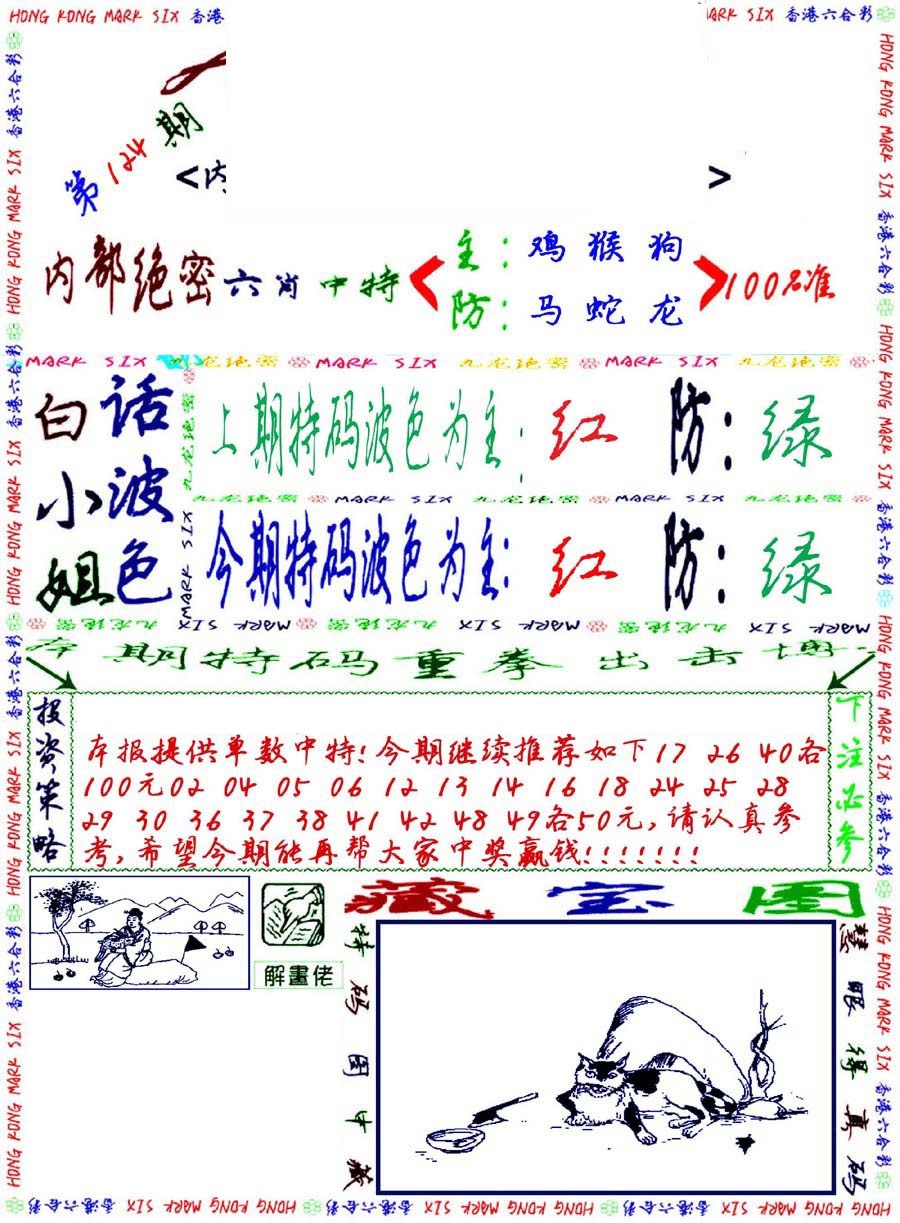 HONG KONG MARK SIX 香港
MARK SIX 香港六合彩
第124期
<内
>
内部绝密六肖中特
主：鸡 猴 狗
防：马 蛇 龙
100%准
MARK SIX 九龙绝密 MARK SIX 九龙绝密 MARK SIX 九龙绝密
白话
小波
姐色
上期特码波色为主：红 防：绿
九龙绝密 MARK SIX 九龙绝密 MARK SIX 九龙绝密
今期特码波色为主：红 防：绿
九龙绝密 MARK SIX 九龙绝密 MARK SIX 九龙绝密 MARK SIX
本期特码重拳出击博
投资策略
本报提供单数中特!今期继续推荐如下17 26 40各
100元02 04 05 06 12 13 14 16 18 24 25 28
29 30 36 37 38 41 42 48 49各50元,请认真参
考,希望今期能再帮大家中奖赢钱!!!!!!!
下注必参
解畫佬
藏宝图
特码图中藏
慧眼得真码
HONG KONG MARK SIX 香港六合彩